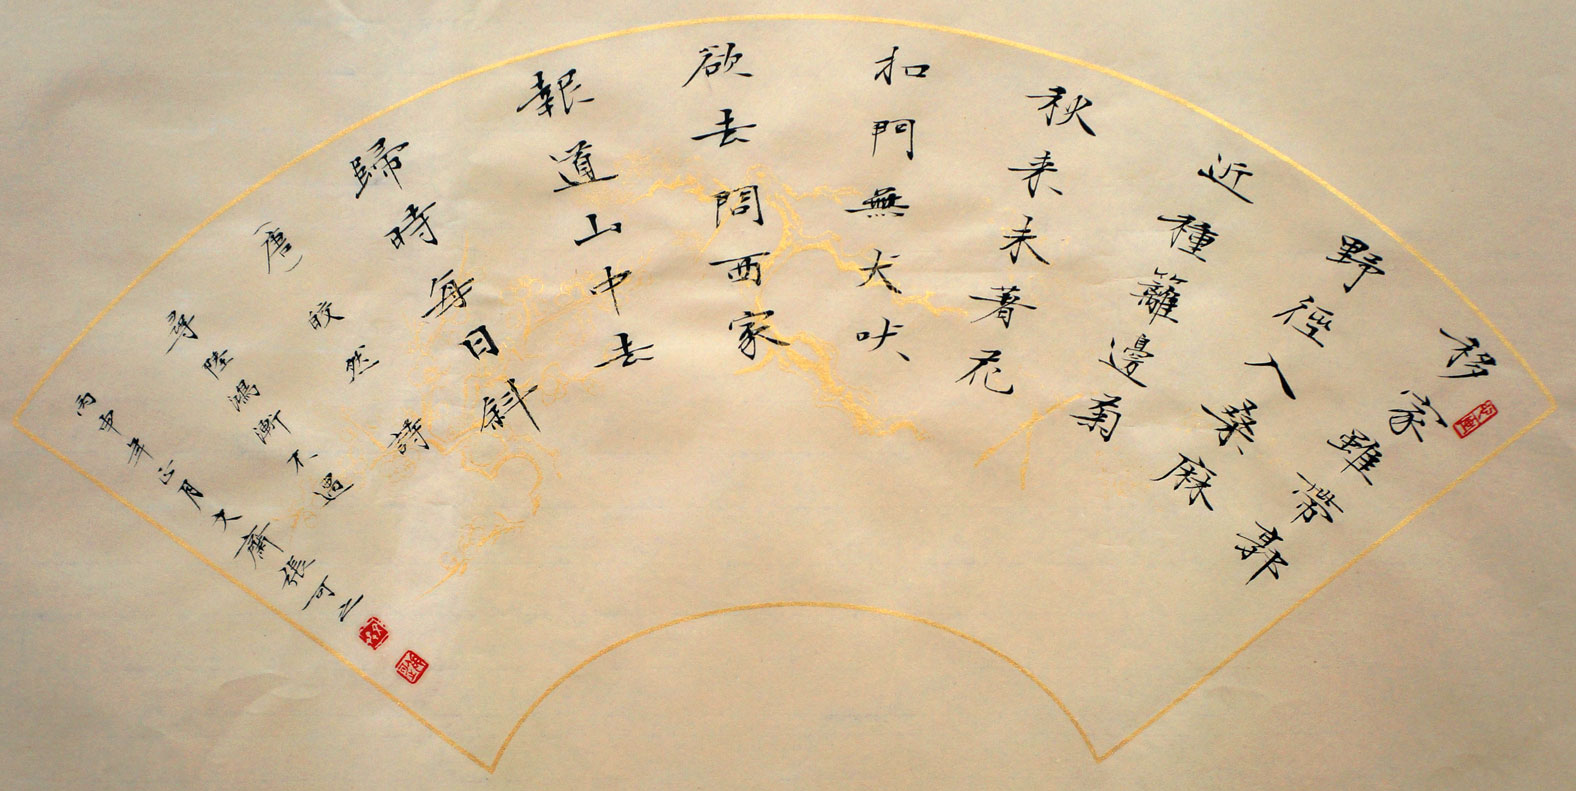 移家雖帶郭
野徑入桑麻
近種籬邊菊
秋来未著花
扣門無犬吠
欲去問西家
報道山中去
歸時每日斜
(唐) 皎然 詩
尋陸鴻漸不遇
丙申年正月文齋張可之